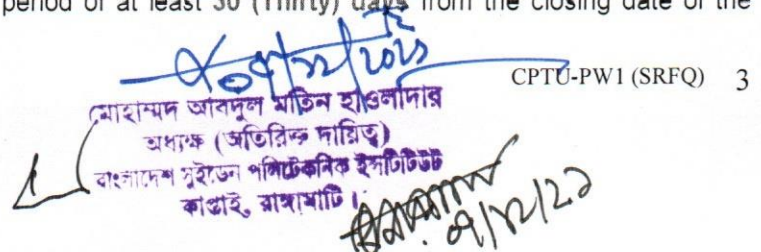 period of at least 30 (Thirty) days from the closing date of the
CPTU-PW1 (SRFQ) 3
মোহাম্মদ আবদুল মতিন হাওলাদার
অধ্যক্ষ (অতিরিক্ত দায়িত্ব)
বাংলাদেশ সুইডেন পলিটেকনিক ইনস্টিটিউট
কাপ্তাই, রাঙ্গামাটি।